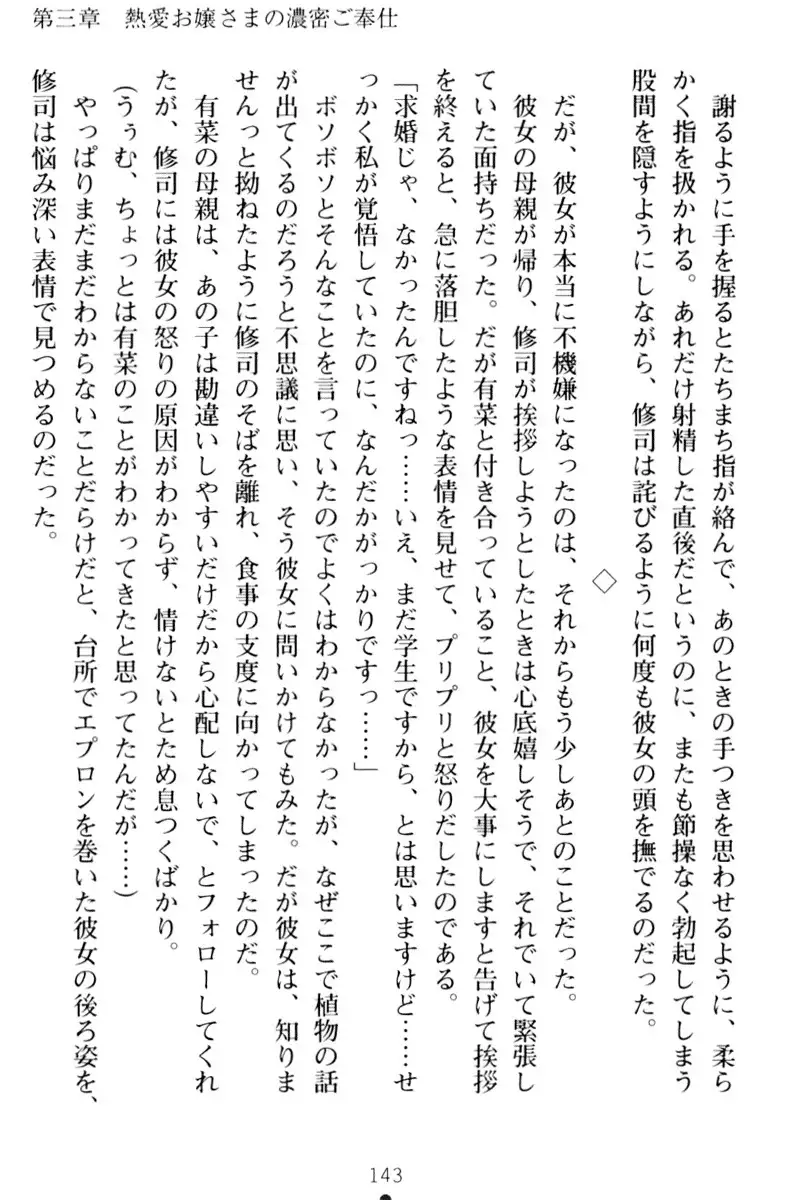 第三章　熱愛お嬢さまの濃密ご奉仕
　謝るように手を握るとたちまち指が絡んで、あのときの手つきを思わせるように、柔ら
かく指を扱かれる。あれだけ射精した直後だというのに、またも節操なく勃起してしまう
股間を隠すようにしながら、修司は詫びるように何度も彼女の頭を撫でるのだった。
◇
　だが、彼女が本当に不機嫌になったのは、それからもう少しあとのことだった。
　彼女の母親が帰り、修司が挨拶しようとしたときは心底嬉しそうで、それでいて緊張し
ていた面持ちだった。だが有菜と付き合っていること、彼女を大事にしますと告げて挨拶
を終えると、急に落胆したような表情を見せて、プリプリと怒りだしたのである。
「求婚じゃ、なかったんですねっ……いえ、まだ学生ですから、とは思いますけど……せ
っかく私が覚悟していたのに、なんだかがっかりですっ……」
　ボソボソとそんなことを言っていたのでよくはわからなかったが、なぜここで植物の話
が出てくるのだろうと不思議に思い、そう彼女に問いかけてもみた。だが彼女は、知りま
せんっと拗ねたように修司のそばを離れ、食事の支度に向かってしまったのだ。
　有菜の母親は、あの子は勘違いしやすいだけだから心配しないで、とフォローしてくれ
たが、修司には彼女の怒りの原因がわからず、情けないとため息つくばかり。
（うぅむ、ちょっとは有菜のことがわかってきたと思ってたんだが……）
　やっぱりまだまだわからないことだらけだと、台所でエプロンを巻いた彼女の後ろ姿を、
修司は悩み深い表情で見つめるのだった。
143